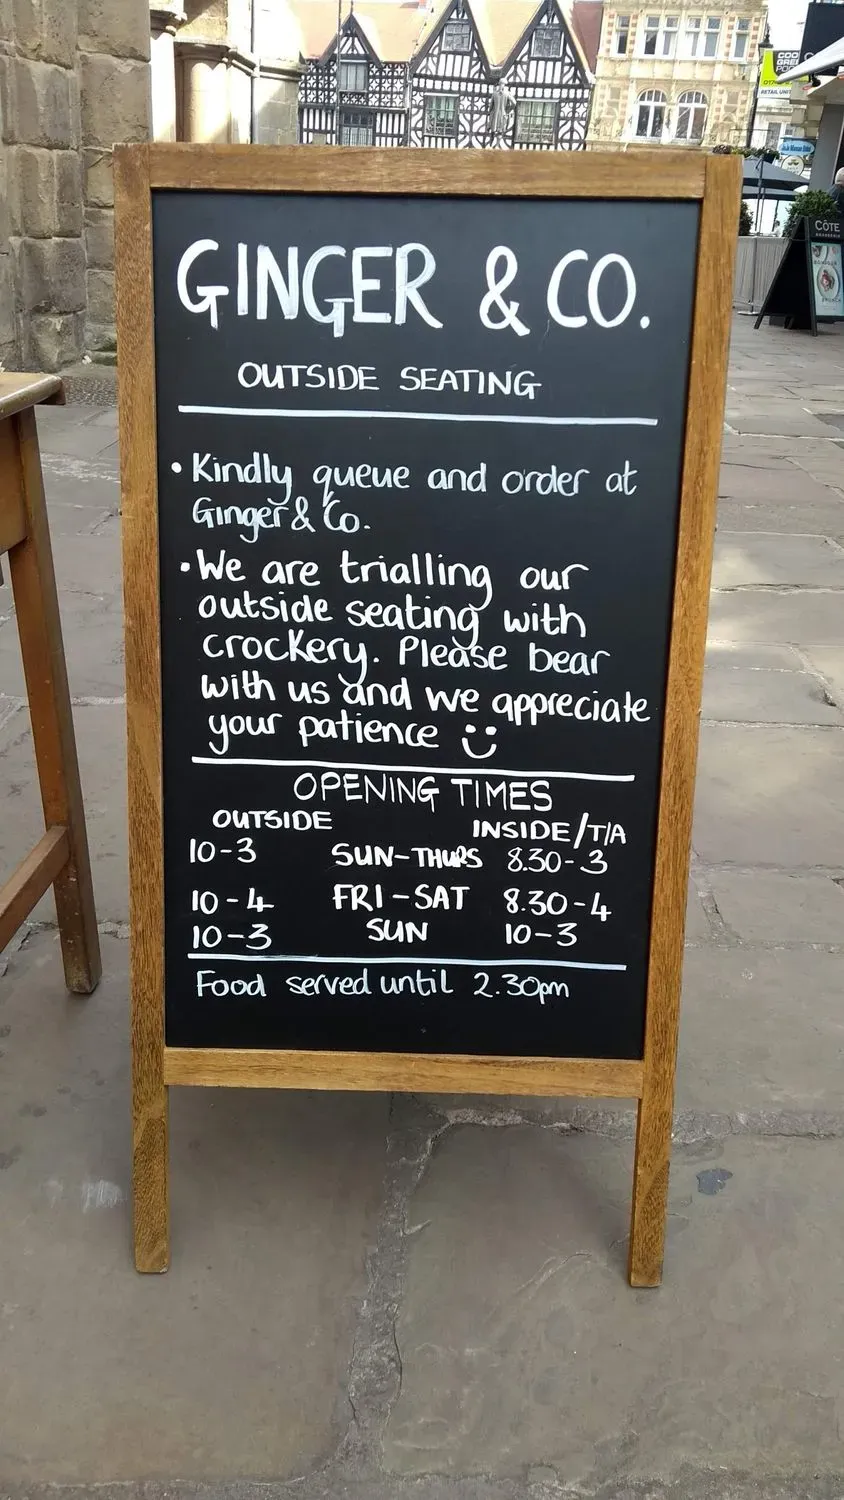 GINGER & CO.
OUTSIDE SEATING
• Kindly queue and order at
Ginger & Co.
• We are trialling our
outside seating with
crockery. Please bear
with us and we appreciate
your patience
OPENING TIMES
OUTSIDE INSIDE/T/A
10-3 SUN-THURS 8.30-3
10-4 FRI-SAT 8.30-4
10-3 SUN 10-3
Food served until 2.30pm
CÔTE
BRASSERIE